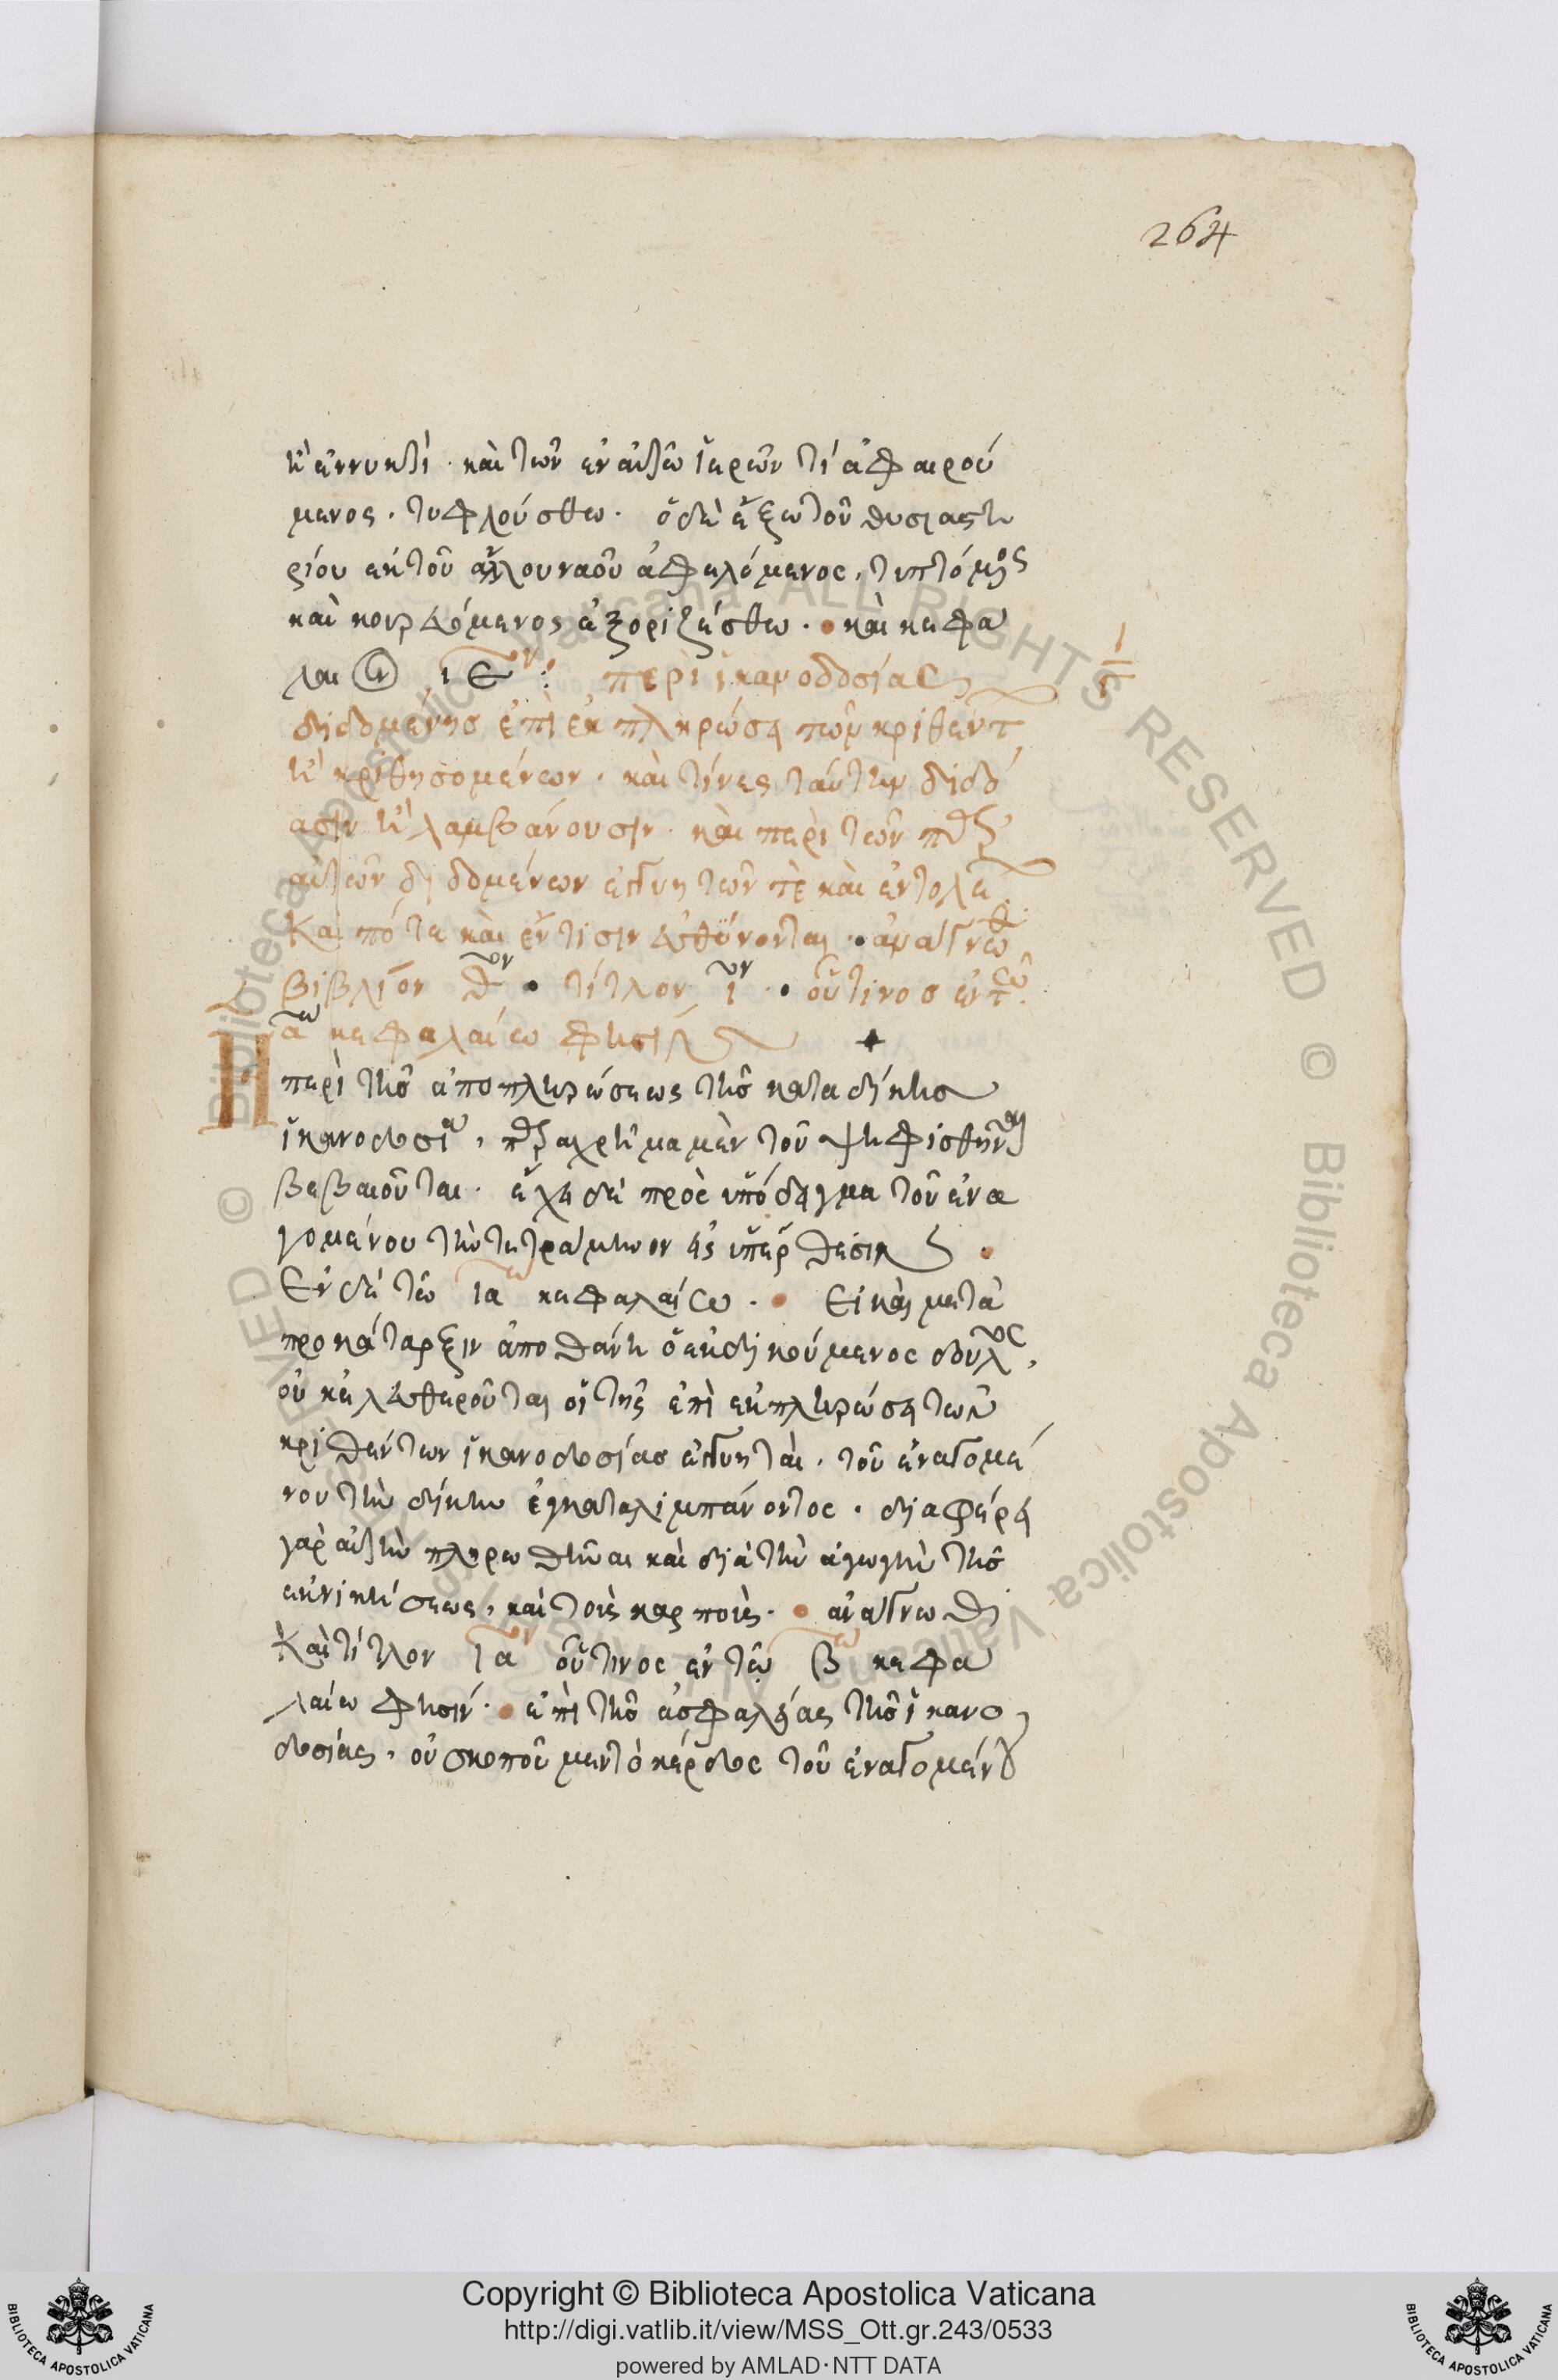 264
ἢ ἐν νυκτί · καὶ τῶν ἐν αὐτῶ ἱερῶν τί ἀφαιρού
μενος, τυφλούσθω · ὁ δὲ ἔξω τοῦ θυσιαστη
ρίου ἐκ τοῦ ἄλλου ναοῦ ἀφελόμενος, τυπτόμος
καὶ κουρευόμενος ἐξοριζέσθω · καὶ κεφα
λαι ιεν : περὶ ἱκανοδοσίας
διδομένης ἐπὶ ἐκπληρώσει τῶν κριθέντ
ἢ κριθησομένων · καὶ τίνες ταύτην διδό
ασιν ἢ λαμβάνουσιν · καὶ περὶ τῶν
αὐτῶν διδομένων ἐγγυητῶν τὲ καὶ ἐντολέ
Καὶ πότε καὶ ἔν τισιν εὐθύνονται · ἀναγνωθ
βιβλίον θον · τίτλον ιον · οὗτινος ἐν τῶ
αω κεφαλαίω φησίν
Η περὶ τῆς ἀποπληρώσεως τῆς καταδίκης
ἱκανοδοσία, παραχρῆμα μὲν τοῦ ψηφισθῆναι
βεβαιοῦται · ἔχει δὲ πρὸς ὑπόδειγμα τοῦ ἐνα
γομένου τὴν τετράμηνον εἰς ὑπέρθεσιν
Ἐν δὲ τῶ ιαω κεφαλαίω · Εἰ καὶ μετὰ
προκάταρξιν ἀποθάνη ὁ ἐκδικούμενος δουλος,
οὐκ ἐλευθεροῦται οἱ τῆς ἐπὶ ἐκπληρώσει τῶν
κριθέντων ἱκανοδοσίας ἐγγυηταὶ · τοῦ ἐναγομέ
νου τὴν δίκην ἐγκαταλιμπάνοντος · διαφέρει
γὰρ αὐτὴν πληρωθῆναι καὶ διὰ τὴν ἀγωγὴν τῆς
ἐκνικήσεως, καὶ τοὺς καρποὺς · ἀνάγνωθι
Καὶ τίτλον ιαον οὗτινος ἐν τῶ βω κεφα
λαίω φησίν · ἐπὶ τῆς ἀσφαλείας τῆς ἱκανο
δοσίας, οὐ σκοποῦμεν τὸ κέρδος τοῦ ἐναγομένου
Copyright © Biblioteca Apostolica Vaticana
http://digi.vatlib.it/view/MSS_Ott.gr.243/0533
powered by AMLAD·NTT DATA